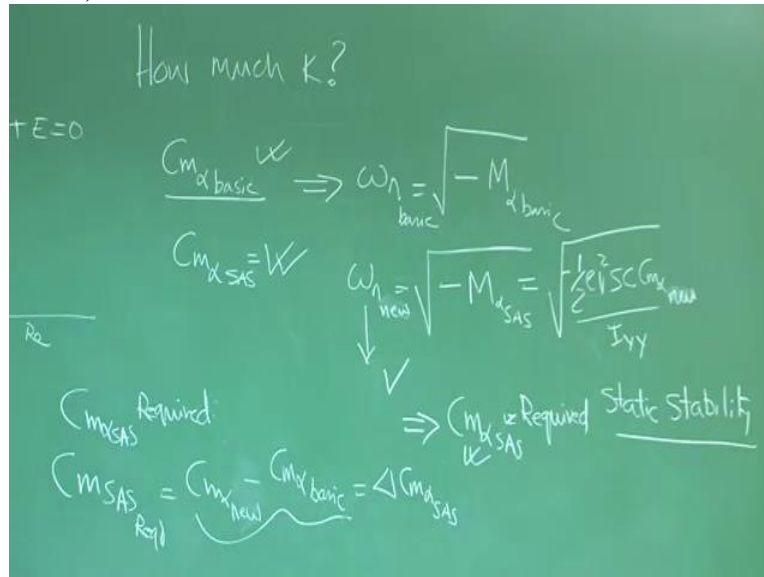 How much K?
+ E=0
Cm_α basic ⇒ ω_n basic = √(-M_α basic)
Cm_α SAS = ω_n new = √(-M_α SAS) = √(-½ρv²SC Cm_α new / I_YY)
Re
Cm_α SAS Required: ⇒ Cm_α SAS Required Static Stability
Cm_SAS Reqd = Cm_α new - Cm_α basic = ΔCm_α SAS